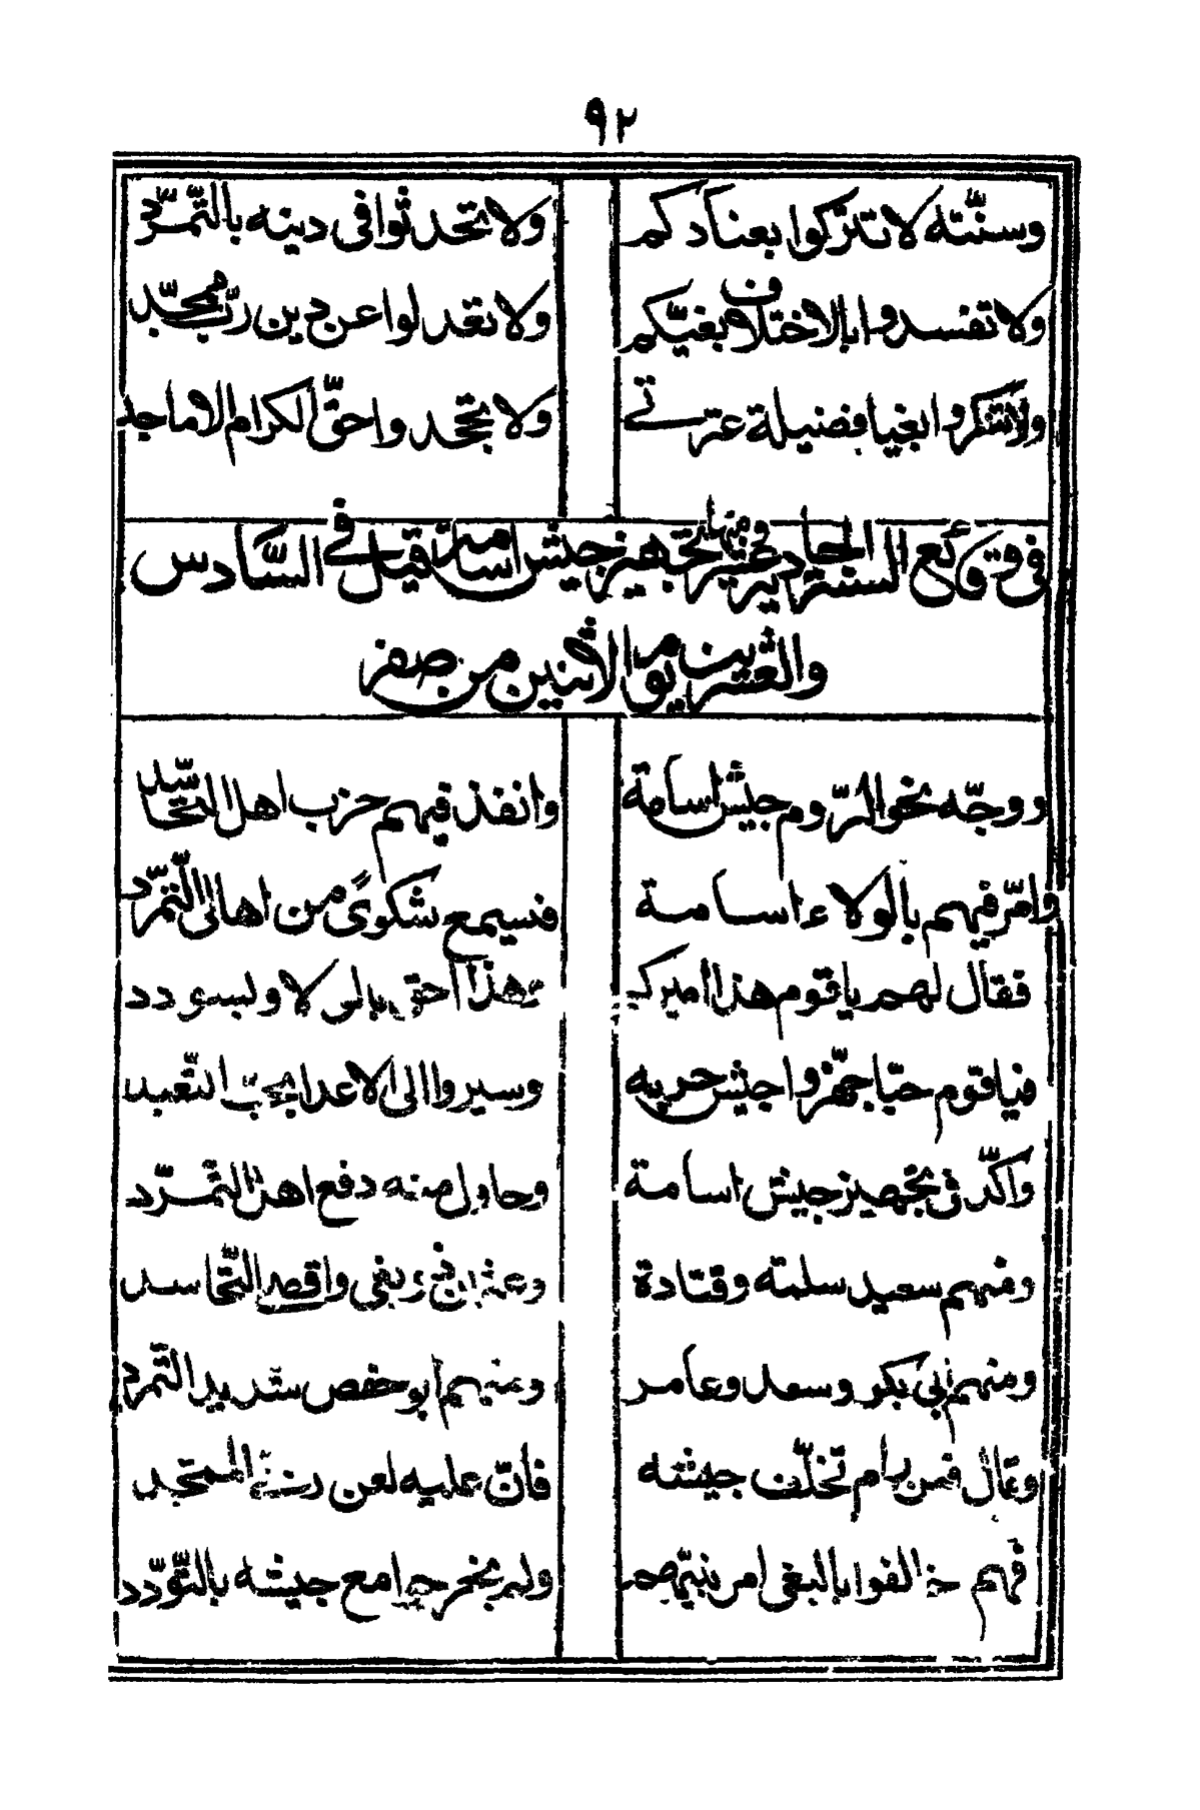 ٩٢
وسنّته لا تتركوا بعنادكم ولا تحدثوا في دينه بالتّمرّد
ولا تفسدوا بالاختلاف بغيّكم ولا تعدلوا عن دين ربّ ممجّد
ولا تنكروا بغيا فضيلة عترتي ولا تجحدوا حقّ الكرام الاماجد
في وقائع السنة الحادية عشر منها تجهيز جيش اسامة قيل في السّادس
والعشرين يوم الاثنين من صفر
ووجّه نحو الرّوم جيش اسامة وانفذ فيهم حزب اهل التّحاسد
وامّر فيهم بالولاء اسامة فسيمع شكوىً من اهالى التّمرّد
فقال لهم يا قوم هذا أميركم هذا أحق لا ولسودد
فيا قوم حبّا جهّزوا جيش حربه وسيروا الى الاعدا بحبّ التّعبد
واكّد في تجهيز جيش اسامة وحاول منه دفع اهل التّمرّد
ومنهم سعيد سلمته وقتادة واقصر التّحاسد
ومنهم أبي بكر وسعد وعامر ومنهم أبو حفص شديد التّمرد
وقال فمن رام تخلّف جيشه فانّ عليه لعن
فهم خالفوا بالبغي امر نبيّهم ولم يخرجوا مع جيشه بالتّودّد